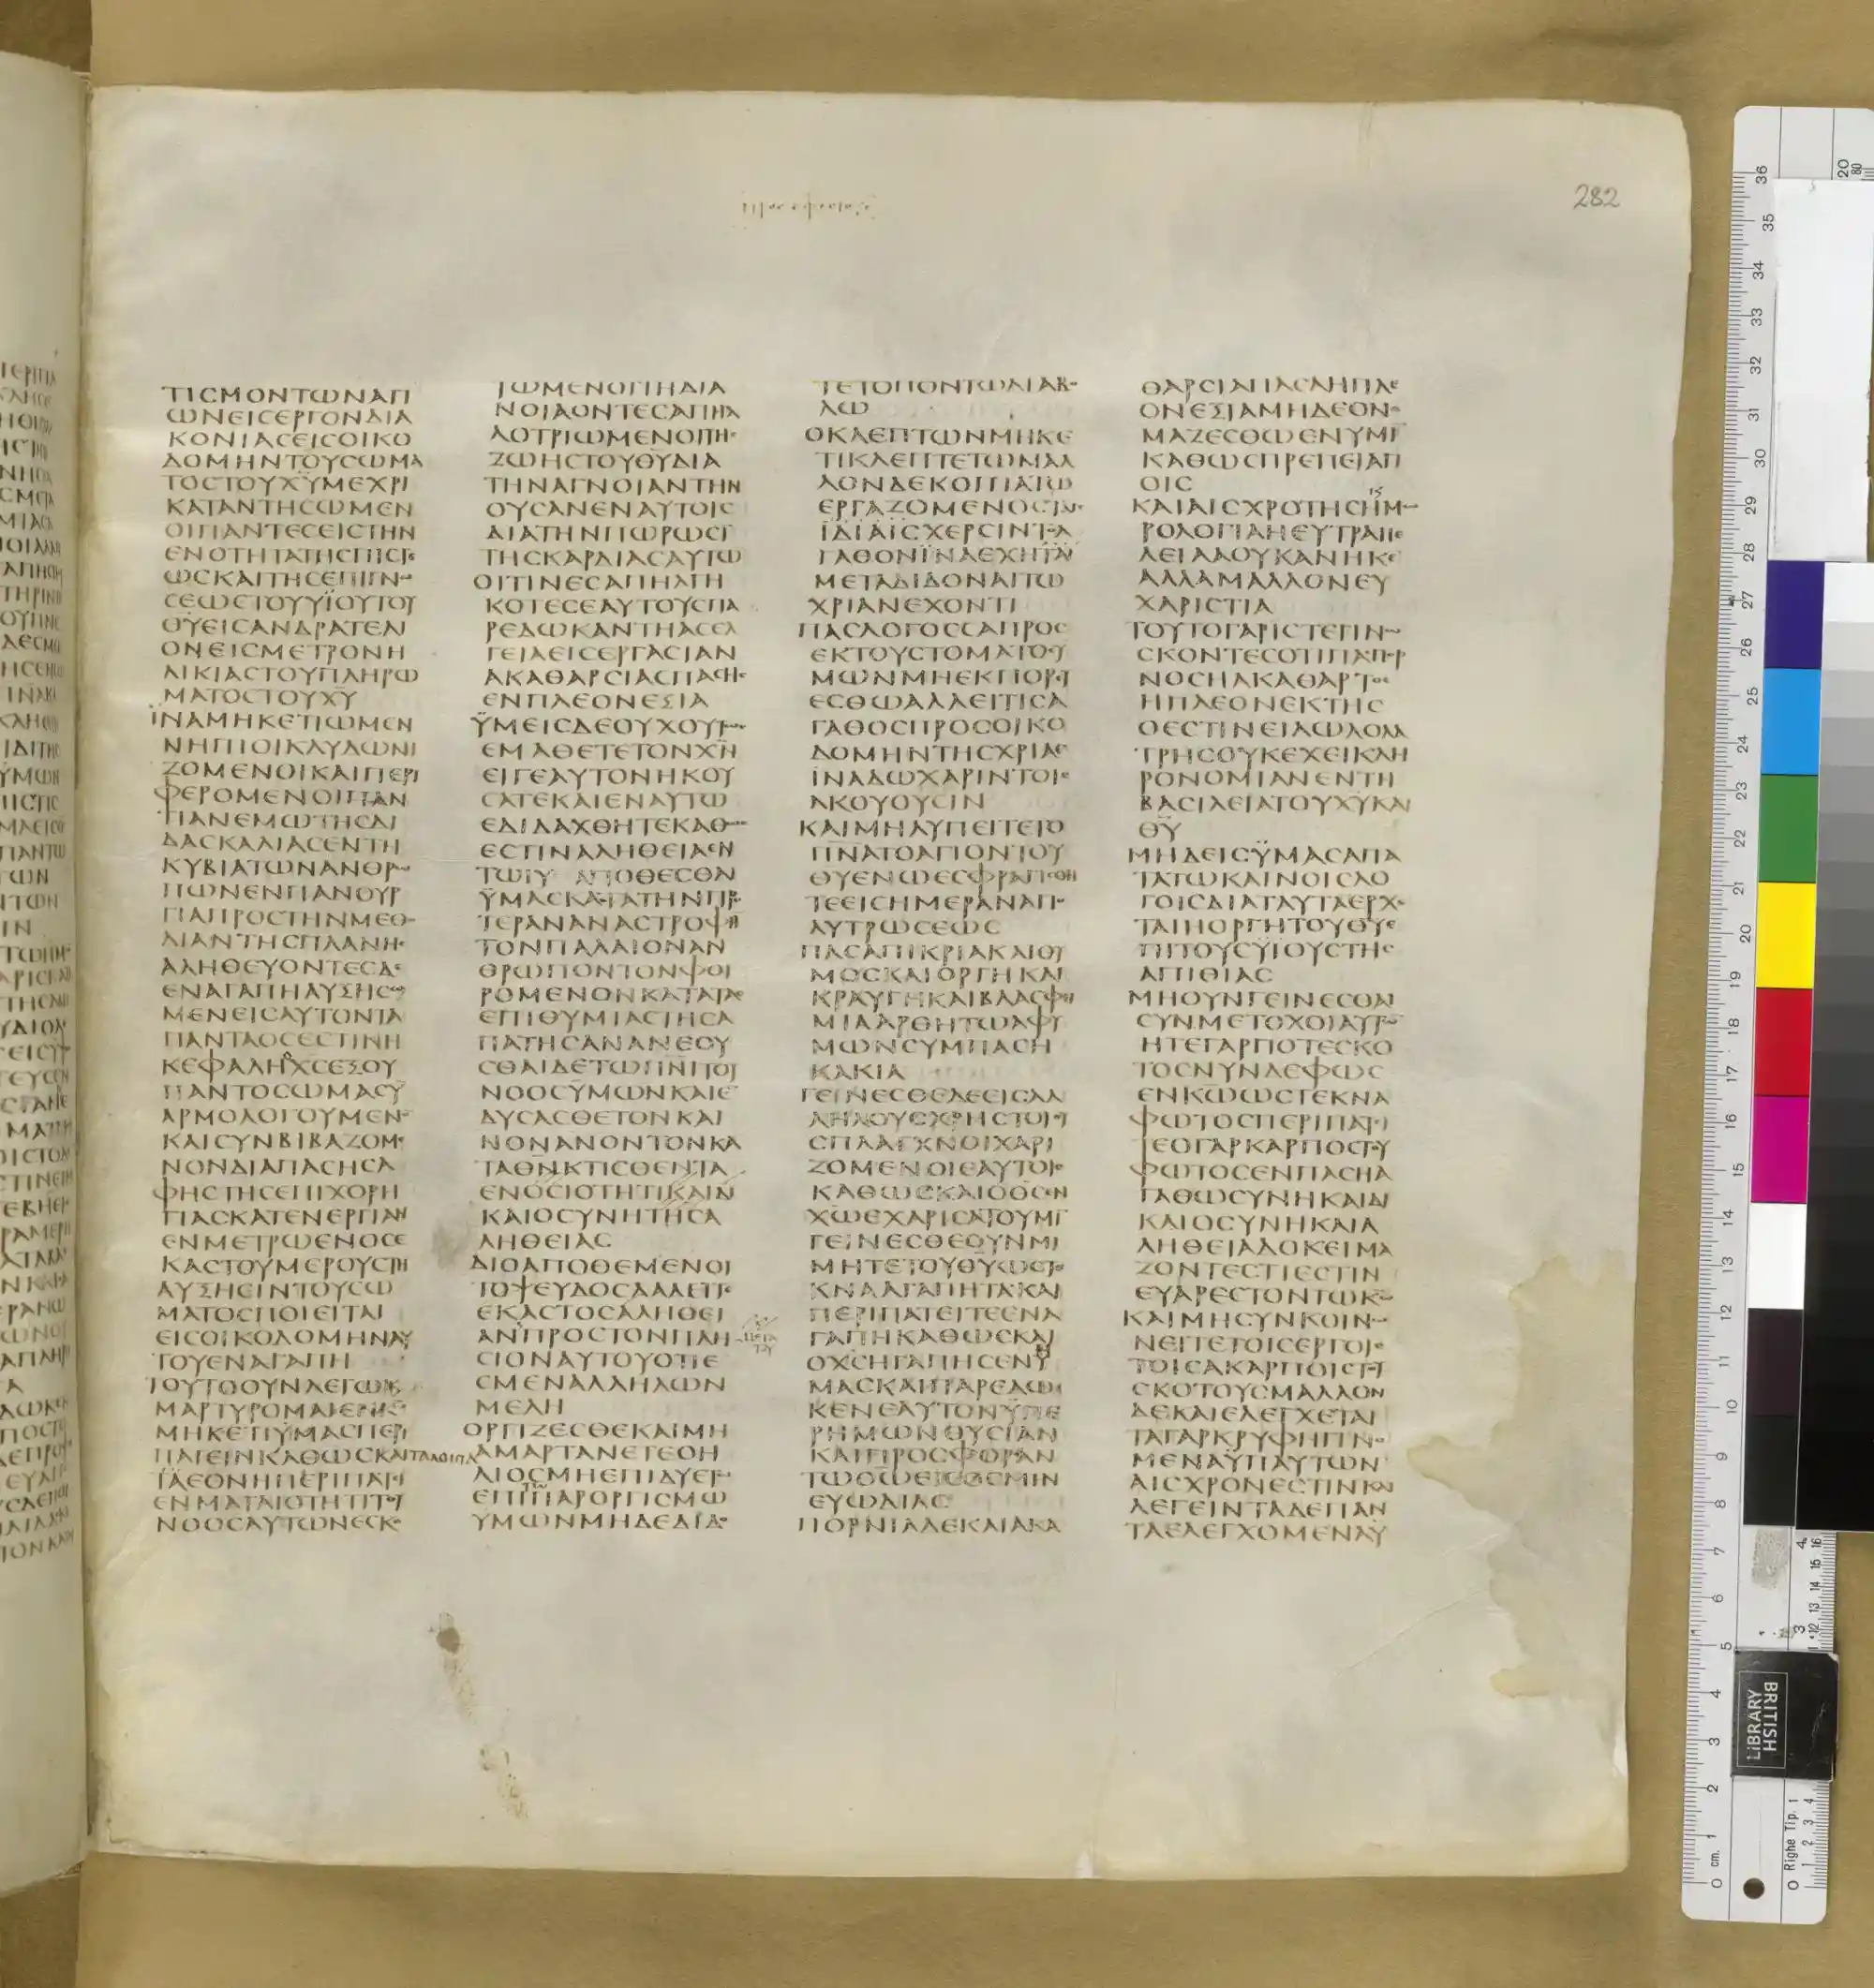 282
ΤΙCΜΟΝΤΩΝΑΓΙ
ΩΝΕΙCΕΡΓΟΝΔΙΑ
ΚΟΝΙΑCΕΙCΟΙΚΟ
ΔΟΜΗΝΤΟΥCΩΜΑ
ΤΟCΤΟΥΧΥΜΕΧΡΙ
ΚΑΤΑΝΤΗCΩΜΕΝ
ΟΙΠΑΝΤΕCΕΙCΤΗΝ
ΕΝΟΤΗΤΑΤΗCΠΙCΤΕ
ΩCΚΑΙΤΗCΕΠΙΓΝΩ
CΕΩCΤΟΥΥΪΟΥΤΟΥ
ΘΥΕΙCΑΝΔΡΑΤΕΛΙ
ΟΝΕΙCΜΕΤΡΟΝΗ
ΛΙΚΙΑCΤΟΥΠΛΗΡΩ
ΜΑΤΟCΤΟΥΧΥ
ΪΝΑΜΗΚΕΤΙΩΜΕΝ
ΝΗΠΙΟΙΚΛΥΔΩΝΙ
ΖΟΜΕΝΟΙΚΑΙΠΕΡΙ
ΦΕΡΟΜΕΝΟΙΠΑΝ
ΤΙΑΝΕΜΩΤΗCΔΙ
ΔΑCΚΑΛΙΑCΕΝΤΗ
ΚΥΒΙΑΤΩΝΑΝΘΡΩ
ΠΩΝΕΝΠΑΝΟΥΡ
ΓΙΑΠΡΟCΤΗΝΜΕΘΟ
ΔΙΑΝΤΗCΠΛΑΝΗC
ΑΛΗΘΕΥΟΝΤΕCΔΕ
ΕΝΑΓΑΠΗΑΥΞΗCΩ
ΜΕΝΕΙCΑΥΤΟΝΤΑ
ΠΑΝΤΑΟCΕCΤΙΝΗ
ΚΕΦΑΛΗΟΧCΕΞΟΥ
ΠΑΝΤΟCΩΜΑCΥ
ΑΡΜΟΛΟΓΟΥΜΕΝΟ
ΚΑΙCΥΝΒΙΒΑΖΟΜΕ
ΝΟΝΔΙΑΠΑCΗCΑ
ΦΗCΤΗCΕΠΙΧΟΡΗ
ΓΙΑCΚΑΤΕΝΕΡΓΙΑΝ
ΕΝΜΕΤΡΩΕΝΟCΕ
ΚΑCΤΟΥΜΕΡΟΥCΤΗ
ΑΥΞΗCΙΝΤΟΥCΩ
ΜΑΤΟCΠΟΙΕΙΤΑΙ
ΕΙCΟΙΚΟΔΟΜΗΝΑΥ
ΤΟΥΕΝΑΓΑΠΗ
ΤΟΥΤΟΟΥΝΛΕΓΩΚΑΙ
ΜΑΡΤΥΡΟΜΑΙΕΝΚΩ
ΜΗΚΕΤΙΫΜΑCΠΕΡΙ
ΠΑΤΕΙΝΚΑΘΩCΚΑΙΤΑΛΟΙΠΑ
ΤΑΕΘΝΗΠΕΡΙΠΑΤΙ
ΕΝΜΑΤΑΙΟΤΗΤΙΤΟΥ
ΝΟΟCΑΥΤΩΝΕCΚΟ
ΤΩΜΕΝΟΙΤΗΔΙΑ
ΝΟΙΑΟΝΤΕCΑΠΗΛ
ΛΟΤΡΙΩΜΕΝΟΙΤΗC
ΖΩΗCΤΟΥΘΥΔΙΑ
ΤΗΝΑΓΝΟΙΑΝΤΗΝ
ΟΥCΑΝΕΝΑΥΤΟΙC
ΔΙΑΤΗΝΠΩΡΩCΙ
ΤΗCΚΑΡΔΙΑCΑΥΤΩ
ΟΙΤΙΝΕCΑΠΗΛΓΗ
ΚΟΤΕCΕΑΥΤΟΥCΠΑ
ΡΕΔΩΚΑΝΤΗΑCΕΛ
ΓΕΙΑΕΙCΕΡΓΑCΙΑΝ
ΑΚΑΘΑΡCΙΑCΠΑCΗC
ΕΝΠΛΕΟΝΕΞΙΑ
ΫΜΕΙCΔΕΟΥΧΟΥΤΩC
ΕΜΑΘΕΤΕΤΟΝΧΝ
ΕΙΓΕΑΥΤΟΝΗΚΟΥ
CΑΤΕΚΑΙΕΝΑΥΤΩ
ΕΔΙΔΑΧΘΗΤΕΚΑΘΩC
ΕCΤΙΝΑΛΗΘΕΙΑΕΝ
ΤΩΙΥ ΑΠΟΘΕCΘΑΙ
ΫΜΑCΚΑΤΑΤΗΝΠΡΟ
ΤΕΡΑΝΑΝΑCΤΡΟΦΗ
ΤΟΝΠΑΛΑΙΟΝΑΝ
ΘΡΩΠΟΝΤΟΝΦΘΙ
ΡΟΜΕΝΟΝΚΑΤΑΤΑC
ΕΠΙΘΥΜΙΑCΤΗCΑ
ΠΑΤΗCΑΝΑΝΕΟΥ
CΘΑΙΔΕΤΩΠΝΙΤΟΥ
ΝΟΟCΫΜΩΝΚΑΙΕ
ΔΥCΑCΘΕΤΟΝΚΑΙ
ΝΟΝΑΝΟΝΤΟΝΚΑ
ΤΑΘΝΚΤΙCΘΕΝΤΑ
ΕΝΟCΙΟΤΗΤΙΚΑΙΔΙ
ΚΑΙΟCΥΝΗΤΗCΑ
ΛΗΘΕΙΑC
ΔΙΟΑΠΟΘΕΜΕΝΟΙ
ΤΟΨΕΥΔΟCΛΑΛΕΙΤΕ
ΕΚΑCΤΟCΑΛΗΘΕΙ
ΑΝΠΡΟCΤΟΝΠΛΗ
CΙΟΝΑΥΤΟΥΟΤΙΕ
CΜΕΝΑΛΛΗΛΩΝ
ΜΕΛΗ
ΟΡΓΙΖΕCΘΕΚΑΙΜΗ
ΑΜΑΡΤΑΝΕΤΕΟΗ
ΛΙΟCΜΗΕΠΙΔΥΕΤΩ
ΕΠΙΠΑΡΟΡΓΙCΜΩ
ΥΜΩΝΜΗΔΕΔΙΔΟ
ΤΕΤΟΠΟΝΤΩΔΙΑΒΟ
ΛΩ
ΟΚΛΕΠΤΩΝΜΗΚΕ
ΤΙΚΛΕΠΤΕΤΩΜΑΛ
ΛΟΝΔΕΚΟΠΙΑΤΩ
ΕΡΓΑΖΟΜΕΝΟCΤΑΙC
ΪΔΙΑΙCΧΕΡCΙΝΤΑ
ΓΑΘΟΝΪΝΑΕΧΗΤΑΙ
ΜΕΤΑΔΙΔΟΝΑΙΤΩ
ΧΡΙΑΝΕΧΟΝΤΙ
ΠΑCΛΟΓΟCCΑΠΡΟC
ΕΚΤΟΥCΤΟΜΑΤΟCΥ
ΜΩΝΜΗΕΚΠΟΡΕΥ
ΕCΘΩΑΛΛΕΙΤΙCΑ
ΓΑΘΟCΠΡΟCΟΙΚΟ
ΔΟΜΗΝΤΗCΧΡΙΑC
ΪΝΑΔΩΧΑΡΙΝΤΟΙC
ΑΚΟΥΟΥCΙΝ
ΚΑΙΜΗΛΥΠΕΙΤΕΤΟ
ΠΝΑΤΟΑΓΙΟΝΤΟΥ
ΘΥΕΝΩΕCΦΡΑΓΙCΘΗ
ΤΕΕΙCΗΜΕΡΑΝΑΠΟ
ΛΥΤΡΩCΕΩC
ΠΑCΑΠΙΚΡΙΑΚΑΙΘΥ
ΜΟCΚΑΙΟΡΓΗΚΑΙ
ΚΡΑΥΓΗΚΑΙΒΛΑCΦΗ
ΜΙΑΑΡΘΗΤΩΑΦΥ
ΜΩΝCΥΜΠΑCΗ
ΚΑΚΙΑ
ΓΕΙΝΕCΘΕΔΕΕΙCΑΛ
ΛΗΛΟΥCΧΡΗCΤΟΙΕΥ
CΠΛΑΓΧΝΟΙΧΑΡΙ
ΖΟΜΕΝΟΙΕΑΥΤΟΙC
ΚΑΘΩCΚΑΙΟΘCΕΝ
ΧΩΕΧΑΡΙCΑΤΟΥΜΙ
ΓΕΙΝΕCΘΕΟΥΝΜΙ
ΜΗΤΕΤΟΥΘΥΩCΤΕ
ΚΝΑΑΓΑΠΗΤΑΚΑΙ
ΠΕΡΙΠΑΤΕΙΤΕΕΝΑ
ΓΑΠΗΚΑΘΩCΚΑΙ
ΟΧCΗΓΑΠΗCΕΝΥ
ΜΑCΚΑΙΠΑΡΕΔΩ
ΚΕΝΕΑΥΤΟΝΫΠΕ
ΡΗΜΩΝΘΥCΙΑΝ
ΚΑΙΠΡΟCΦΟΡΑΝ
ΤΩΘΩΕΙCΟCΜΗΝ
ΕΥΩΔΙΑC
ΠΟΡΝΙΑΔΕΚΑΙΑΚΑ
ΘΑΡCΙΑΠΑCΑΗΠΛΕ
ΟΝΕΞΙΑΜΗΔΕΟΝΟ
ΜΑΖΕCΘΩΕΝΥΜΙ
ΚΑΘΩCΠΡΕΠΕΙΑΓΙ
ΟΙC
ΚΑΙΑΙCΧΡΟΤΗCΗΜΩ
ΡΟΛΟΓΙΑΗΕΥΤΡΑΠΕ
ΛΕΙΑΑΟΥΚΑΝΗΚΕ
ΑΛΛΑΜΑΛΛΟΝΕΥ
ΧΑΡΙCΤΙΑ
ΤΟΥΤΟΓΑΡΙCΤΕΓΙΝΩ
CΚΟΝΤΕCΟΤΙΠΑCΠΟΡ
ΝΟCΗΑΚΑΘΑΡΤΟC
ΗΠΛΕΟΝΕΚΤΗC
ΟΕCΤΙΝΕΙΔΩΛΟΛΑ
ΤΡΗCΟΥΚΕΧΕΙΚΛΗ
ΡΟΝΟΜΙΑΝΕΝΤΗ
ΒΑCΙΛΕΙΑΤΟΥΧΥΚΑΙ
ΘΥ
ΜΗΔΕΙCΫΜΑCΑΠΑ
ΤΑΤΩΚΑΙΝΟΙCΛΟ
ΓΟΙCΔΙΑΤΑΥΤΑΕΡΧΕ
ΤΑΙΗΟΡΓΗΤΟΥΘΥΕ
ΠΙΤΟΥCΫΙΟΥCΤΗC
ΑΠΙΘΙΑC
ΜΗΟΥΝΓΕΙΝΕCΘΑΙ
CΥΝΜΕΤΟΧΟΙΑΥΤΩ
ΗΤΕΓΑΡΠΟΤΕCΚΟ
ΤΟCΝΥΝΔΕΦΩC
ΕΝΚΩΩCΤΕΚΝΑ
ΦΩΤΟCΠΕΡΙΠΑΤΙ
ΤΕΟΓΑΡΚΑΡΠΟCΤΟΥ
ΦΩΤΟCΕΝΠΑCΗΑ
ΓΑΘΩCΥΝΗΚΑΙΔΙ
ΚΑΙΟCΥΝΗΚΑΙΑ
ΛΗΘΕΙΑΔΟΚΕΙΜΑ
ΖΟΝΤΕCΤΙΕCΤΙΝ
ΕΥΑΡΕCΤΟΝΤΩΚΩ
ΚΑΙΜΗCΥΝΚΟΙΝΩ
ΝΕΙΤΕΤΟΙCΕΡΓΟΙC
ΤΟΙCΑΚΑΡΠΟΙCΤΟΥ
CΚΟΤΟΥCΜΑΛΛΟΝ
ΔΕΚΑΙΕΛΕΓΧΕΤΑΙ
ΤΑΓΑΡΚΡΥΦΗΓΙΝΟ
ΜΕΝΑΫΠΑΥΤΩΝ
ΑΙCΧΡΟΝΕCΤΙΝΚΑΙ
ΛΕΓΕΙΝΤΑΔΕΠΑΝ
ΤΑΕΛΕΓΧΟΜΕΝΑΫ
BRITISH
LIBRARY
0 cm. 1 2 3 4 5 6 7 8 9 10 11 12 13 14 15 16 17 18 19 20 21 22 23 24 25 26 27 28 29 30 31 32 33 34 35 36
0 Righe Tip. 1